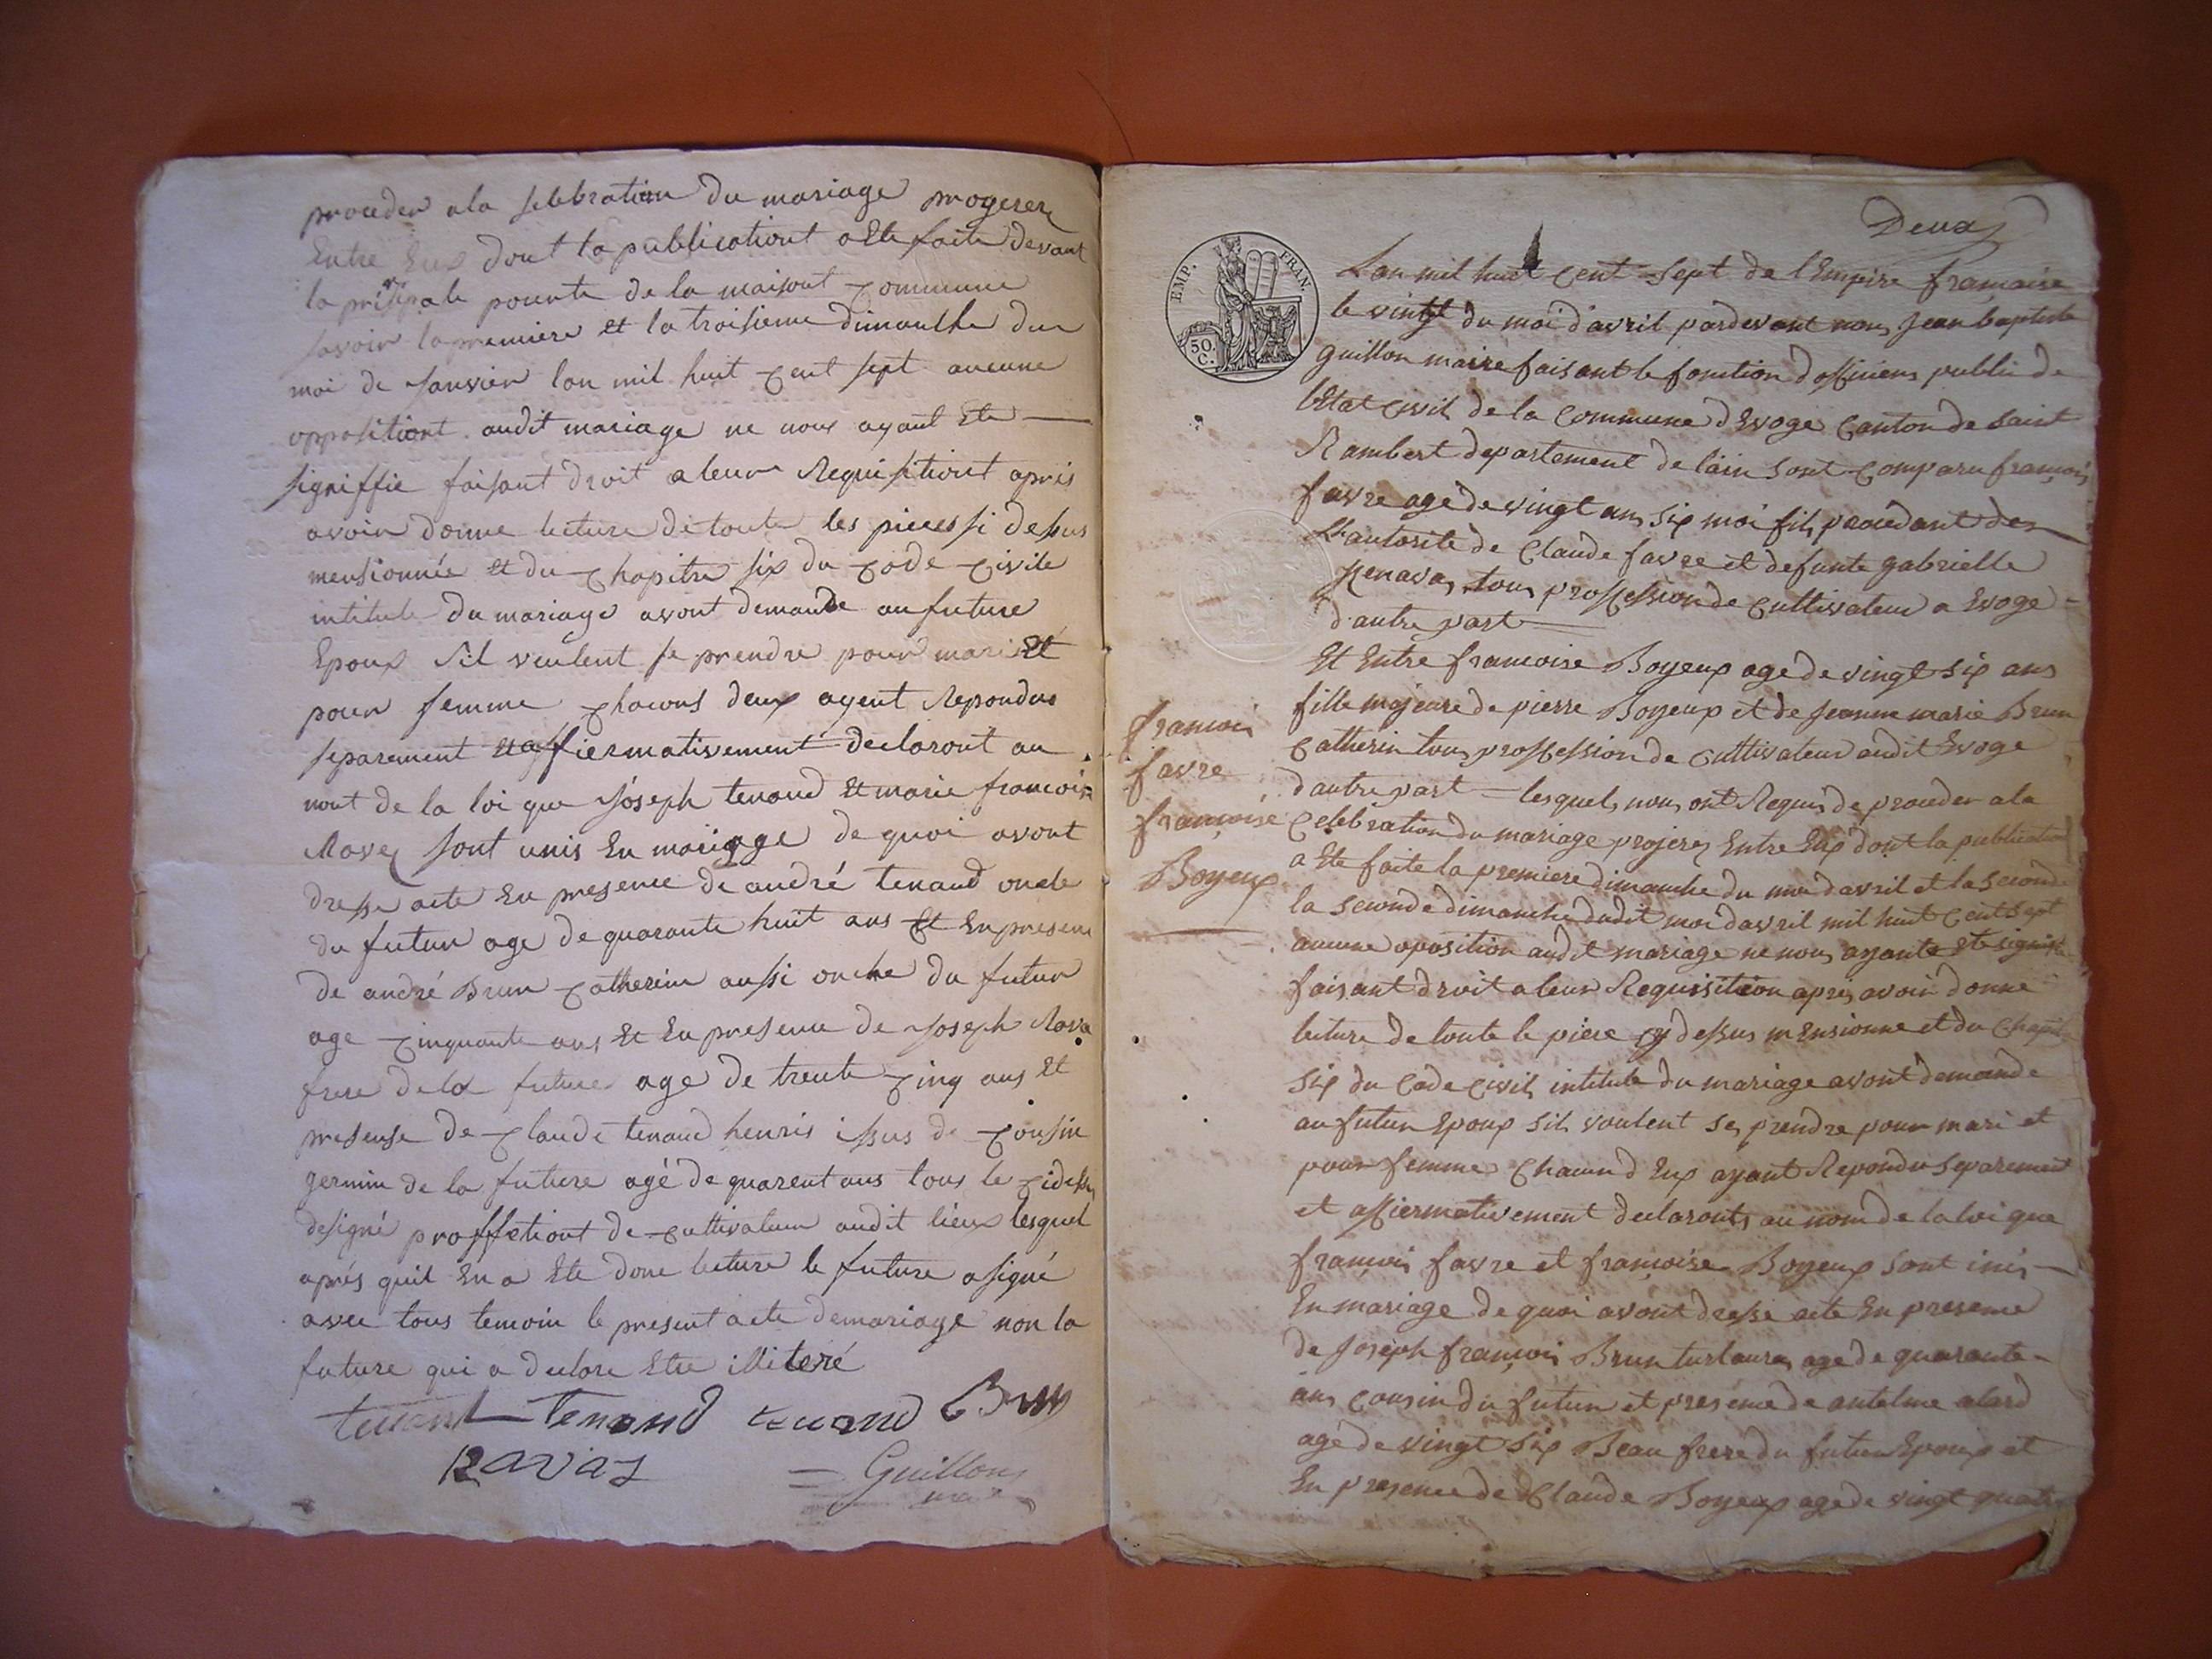 proceder ala selebration du mariage progerer
Entre Eux dont la publicationt a Ete faite devant
la prinsipale pourte de la maisont commune
savoir la premiere et la troisieme dimanche du
moi de Janvier lan mil huit cent sept aucune
oppositiont audit mariage ne nous ayant Ete
signiffie faisant droit a leur Requisitiont apris
avoir donne lecture de toute les pieces si dessus
mensionnée et du chapitre six du code civile
intitule du mariage avont demande au future
Epoux Sil veulent se prendre pour mari Et
pour femme chacons deux ayent Repondus
separement Et affiermativement declaront au
nont de la loi que Joseph tenand Et marie francoise
Ravey sont unis En mariage de quoi avont
dresse acte En presence de andré tenand oncle
du futur age de quarante huit ans Et En presence
de andré Brun catherin aussi oncle du futur
age cinquante ans Et En presence de Joseph Rava
frere de la future age de trente cinq ans Et
presense de claude tenand henris issus de cousin
germin de la future agé de quarent ans tous le cidessus
designé proffetiont de cultivateur audit lieux lesquel
aprés quil En a Ete done lecture le future a signé
avec tous temoin le present acte de mariage non la
future qui a declare Etre illiteré
tenand tenand tenand Brun
Ravas
Guillon
maire
Deux
EMP. FRAN.
50.
C.
Lan mil huit cent sept de l'Empire francaise
le vingt du moi d'avril pardevant nous Jean baptiste
guillon maire faisant le fonction d'officiers public de
l'Etat civil de la commune d'Evoge canton de saint
Rambert departement de l'ain sont comparu francois
favre age de vingt ans six moi fils procedant de
L'autorite de Claude favre et defunte gabrielle
tous proffession de cultivateur a Evoge
d'autre part
Et Entre francoise Boyeux age de vingt six ans
fille majeure de pierre Boyeux et de Jeanne marie Brun
catherin tous proffession de cultivateur audit Evoge
d'autre part lesquels nous ont Requis de proceder ala
celebration du mariage projerez Entre Eux dont la publication
a Ete faite la premiere dimanche du moi d'avril et la seconde
la seconde dimanche dudit moi d'avril mil huit cent sept
aucune oposition audit mariage ne nous ayante Ete signifie
faisant droit a leur Requisition apres avoir donne
lecture de toute le piece cy dessus mensionne et du chapitre
six du Code civil intitule du mariage avont demande
au futur Epoux sils voulent se prendre pour mari et
pour femme chacun d'Eux ayant Repondu separement
et affiermativement declaronts au nom de la loi que
francois favre et francoise Boyeux sont inis
En mariage de quoi avont dresse acte En presence
de Joseph francois Brun age de quarante
ans cousin du futur et presence de antelme alard
agé de vingt six Beau frere du futur Epoux et
En presence de Claude Boyeux age de vingt quatre
francois
favre
francoise
Boyeux